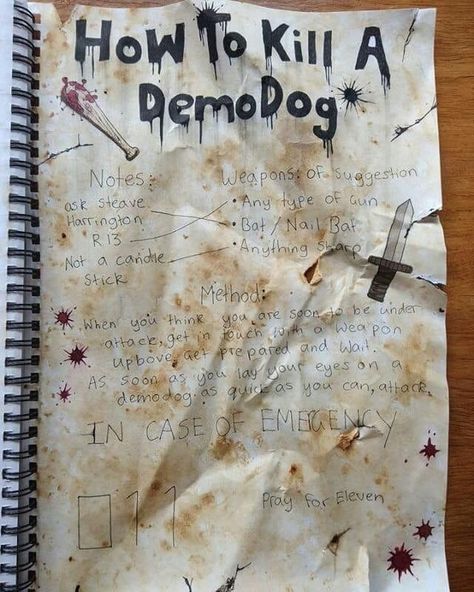 How To Kill A
DemoDog
Notes:
ask steave
Harrington
R13
Not a candle
stick
Weapons: of suggestion
• Any type of Gun
• Bat / Nail Bat
• Anything sharp
Method:
When you think you are soon to be under
attack, get in touch with a weapon
upbove, get prepared and wait.
As soon as you lay your eyes on a
demodog as quick as you can, attack.
IN CASE OF EMERGENCY
011
Pray for Eleven